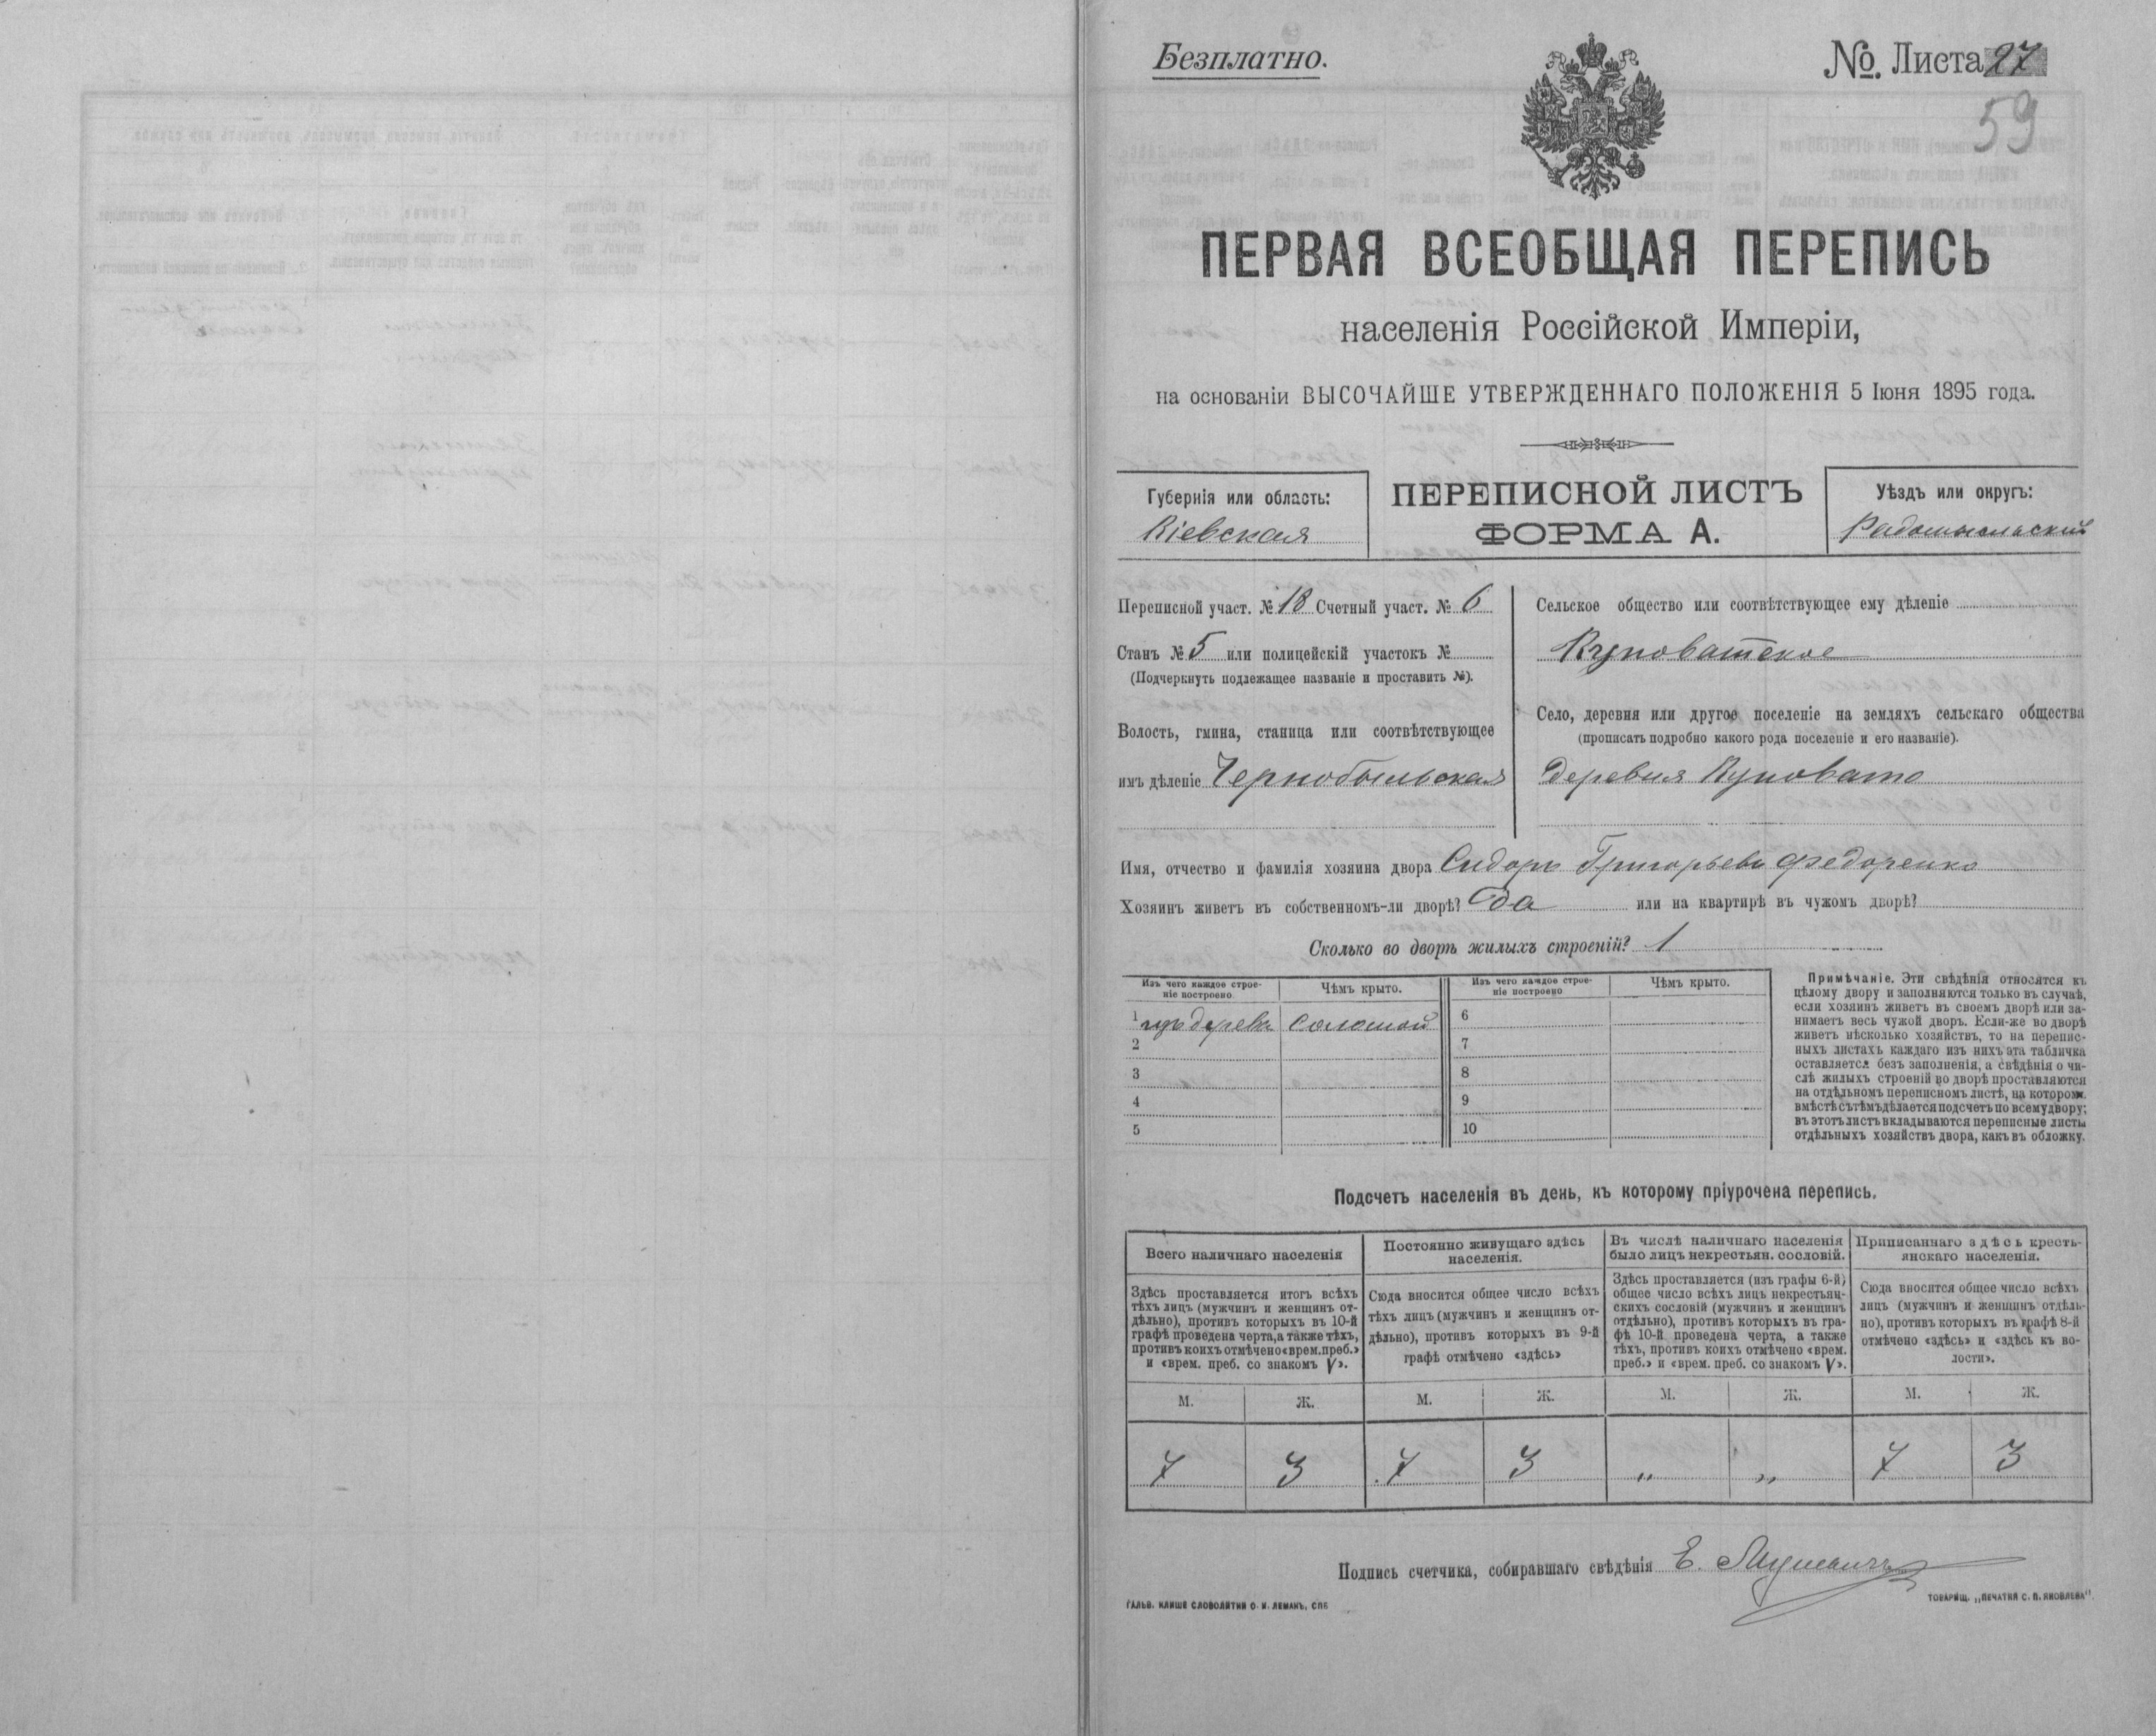 Безплатно.
№. Листа 27
59
ПЕРВАЯ ВСЕОБЩАЯ ПЕРЕПИСЬ
населенія Россійской Имперіи,
на основаніи ВЫСОЧАЙШЕ УТВЕРЖДЕННАГО ПОЛОЖЕНІЯ 5 Іюня 1895 года.
Губернія или область:
Кіевская
ПЕРЕПИСНОЙ ЛИСТЪ
ФОРМА А.
Уѣздъ или округъ:
Радомысльскій
Переписной участ. № 18 Счетный участ. № 6
Станъ № 5 или полицейскій участокъ №
(Подчеркнуть подлежащее названіе и проставить №).
Волость, гмина, станица или соотвѣтствующее
имъ дѣленіе Чернобыльская
Сельское общество или соотвѣтствующее ему дѣленіе
Куповатское
Село, деревня или другое поселеніе на земляхъ сельскаго общества
(прописать подробно какого рода поселеніе и его названіе).
Деревня Куповато
Имя, отчество и фамилія хозяина двора Сидоръ Григорьевъ Федоренко
Хозяинъ живетъ въ собственномъ-ли дворѣ? Да или на квартирѣ въ чужомъ дворѣ?
Сколько во дворѣ жилыхъ строеній? 1
Изъ чего каждое строе-
ніе построено
Чѣмъ крыто.
Изъ чего каждое строе-
ніе построено
Чѣмъ крыто.
1 изъ дерева соломой 6
2 7
3 8
4 9
5 10
Примѣчаніе. Эти свѣдѣнія относятся къ
цѣлому двору и заполняются только въ случаѣ,
если хозяинъ живетъ въ своемъ дворѣ или за-
нимаетъ весь чужой дворъ. Если-же во дворѣ
живетъ нѣсколько хозяйствъ, то на перепис-
ныхъ листахъ каждаго изъ нихъ эта табличка
оставляется безъ заполненія, а свѣдѣнія о чи-
слѣ жилыхъ строеній во дворѣ проставляются
на отдѣльномъ переписномъ листѣ, на которомъ
вмѣстѣ съ тѣмъ дѣлается подсчетъ по всему двору;
въ этотъ листъ вкладываются переписные листы
отдѣльныхъ хозяйствъ двора, какъ въ обложку.
Подсчетъ населенія въ день, къ которому пріурочена перепись.
Всего наличнаго населенія
Здѣсь проставляется итогъ всѣхъ
тѣхъ лицъ (мужчинъ и женщинъ от-
дѣльно), противъ которыхъ въ 10-й
графѣ проведена черта, а также тѣхъ,
противъ коихъ отмѣчено «врем. преб.»
и «врем. преб. со знакомъ V».
Постоянно живущаго здѣсь
населенія.
Сюда вносится общее число всѣхъ
тѣхъ лицъ (мужчинъ и женщинъ от-
дѣльно), противъ которыхъ въ 9-й
графѣ отмѣчено «здѣсь»
Въ числѣ наличнаго населенія
было лицъ некрестьян. сословій.
Здѣсь проставляется (изъ графы 6-й)
общее число всѣхъ лицъ некрестьян-
скихъ сословій (мужчинъ и женщинъ
отдѣльно), противъ которыхъ въ гра-
фѣ 10-й проведена черта, а также
тѣхъ, противъ коихъ отмѣчено «врем.
преб.» и «врем. преб. со знакомъ V».
Приписаннаго здѣсь кресть-
янскаго населенія.
Сюда вносится общее число всѣхъ
лицъ (мужчинъ и женщинъ отдѣль-
но), противъ которыхъ въ графѣ 8-й
отмѣчено «здѣсь» и «здѣсь къ во-
лости».
М. Ж. М. Ж. М. Ж. М. Ж.
7 3 7 3 „ „ 7 3
Подпись счетчика, собиравшаго свѣдѣнія Е.
ГАЛЬВ. КЛИШЕ СЛОВОЛИТНИ О. И. ЛЕМАНЪ, СПБ
ТОВАРИЩ. „ПЕЧАТНЯ С. П. ЯКОВЛЕВА"